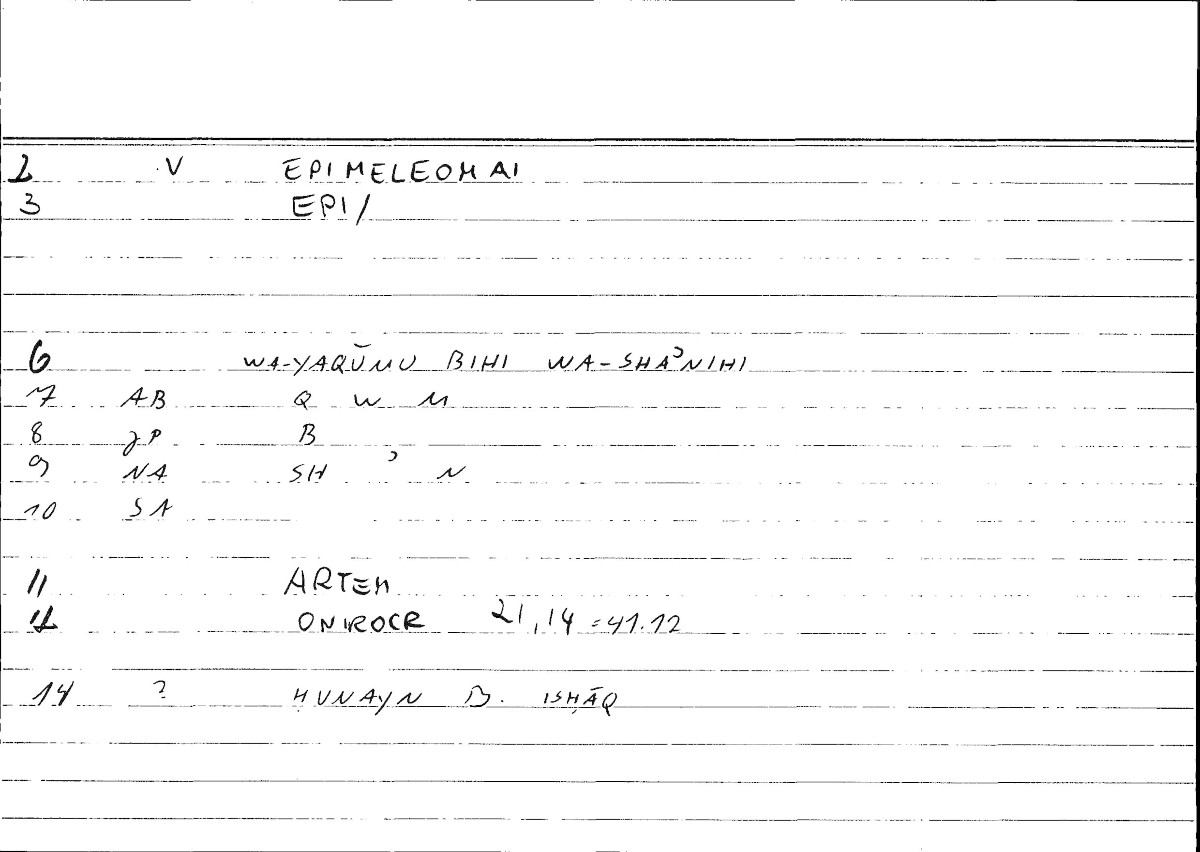 2 V EPIMELEOMAI
3 EPI/
6 WA-YAQŪMU BIHI WA-SHAʾNIHI
7 AB Q W M
8 JP B
9 NA SH ʾ N
10 SA
11 ARTEM
12 ONIROCR 21,14 =41.12
14 ? ḤUNAYN B. ISḤĀQ